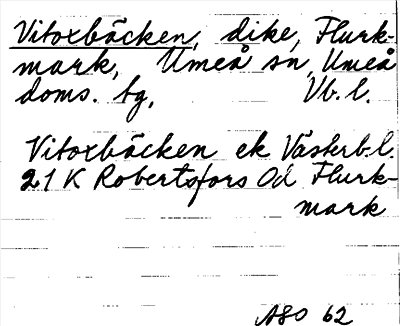 Vitoxbäcken, dike, Flurk-
mark, Umeå sn, Umeå
doms. tg, Vb. l.
Vitoxbäcken ek Västerb. l.
21 K Robertsfors Od Flurk-
mark
ASO 62